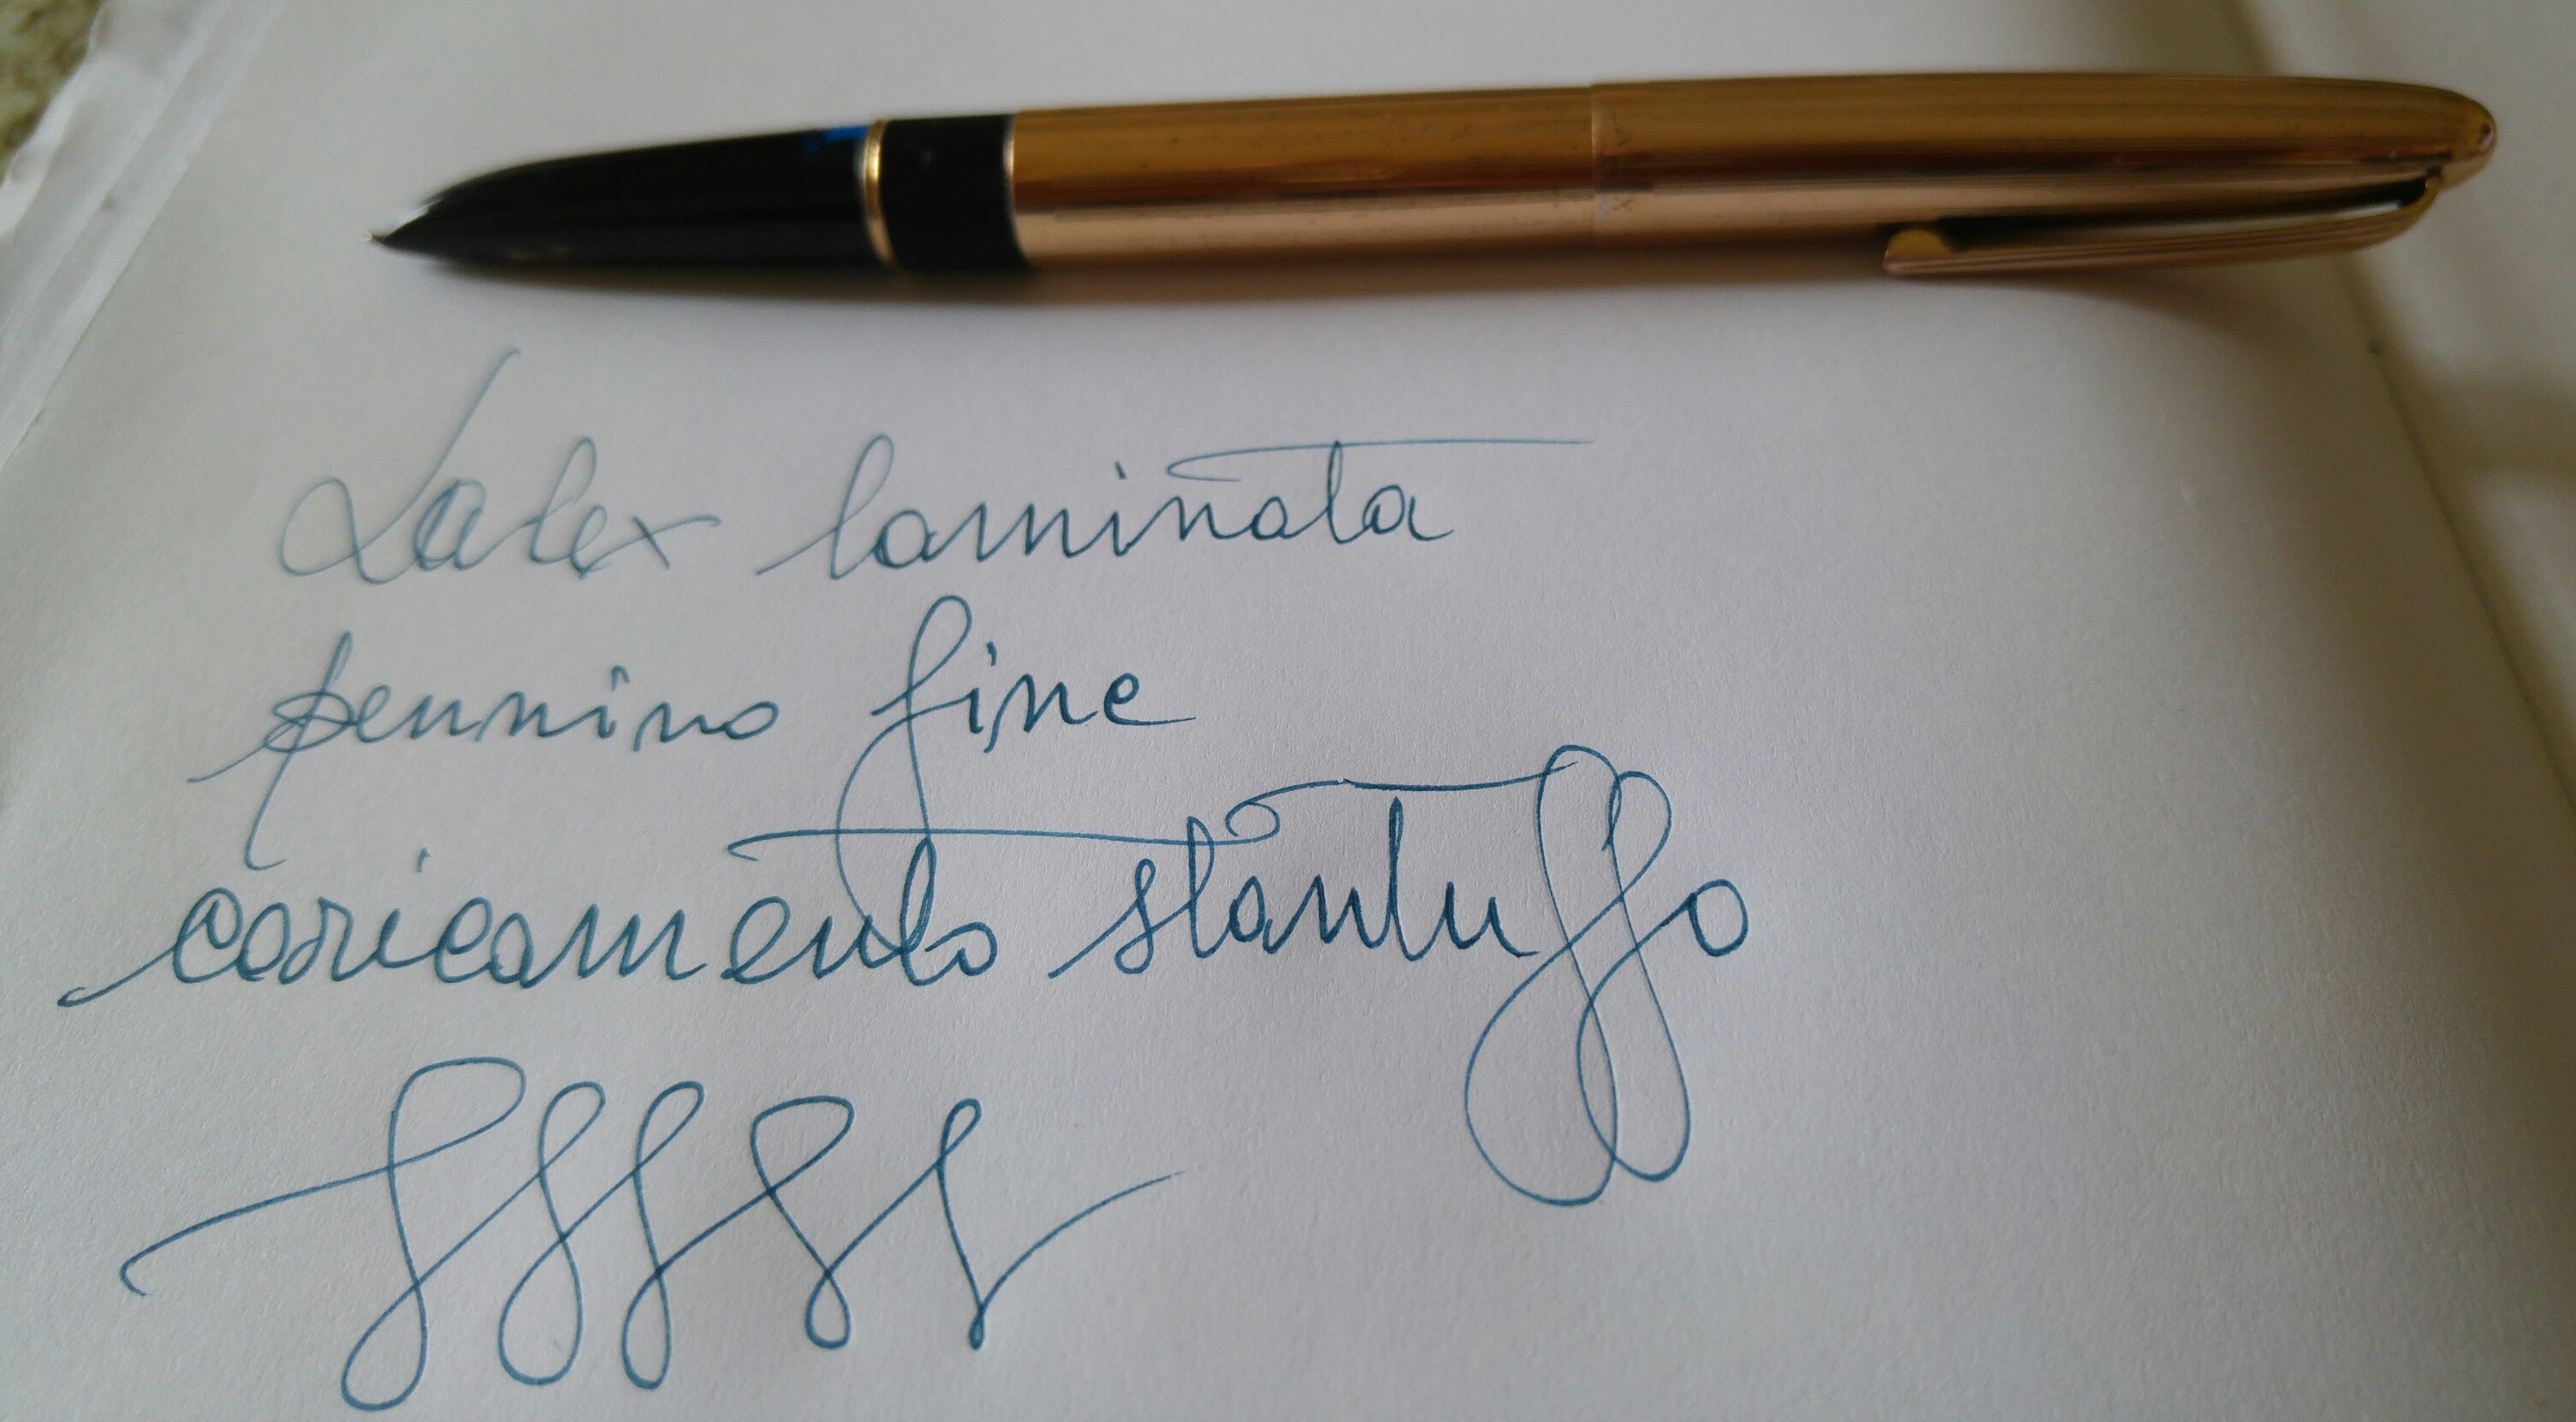 Lalex laminata
pennino fine
caricamento stantuffo